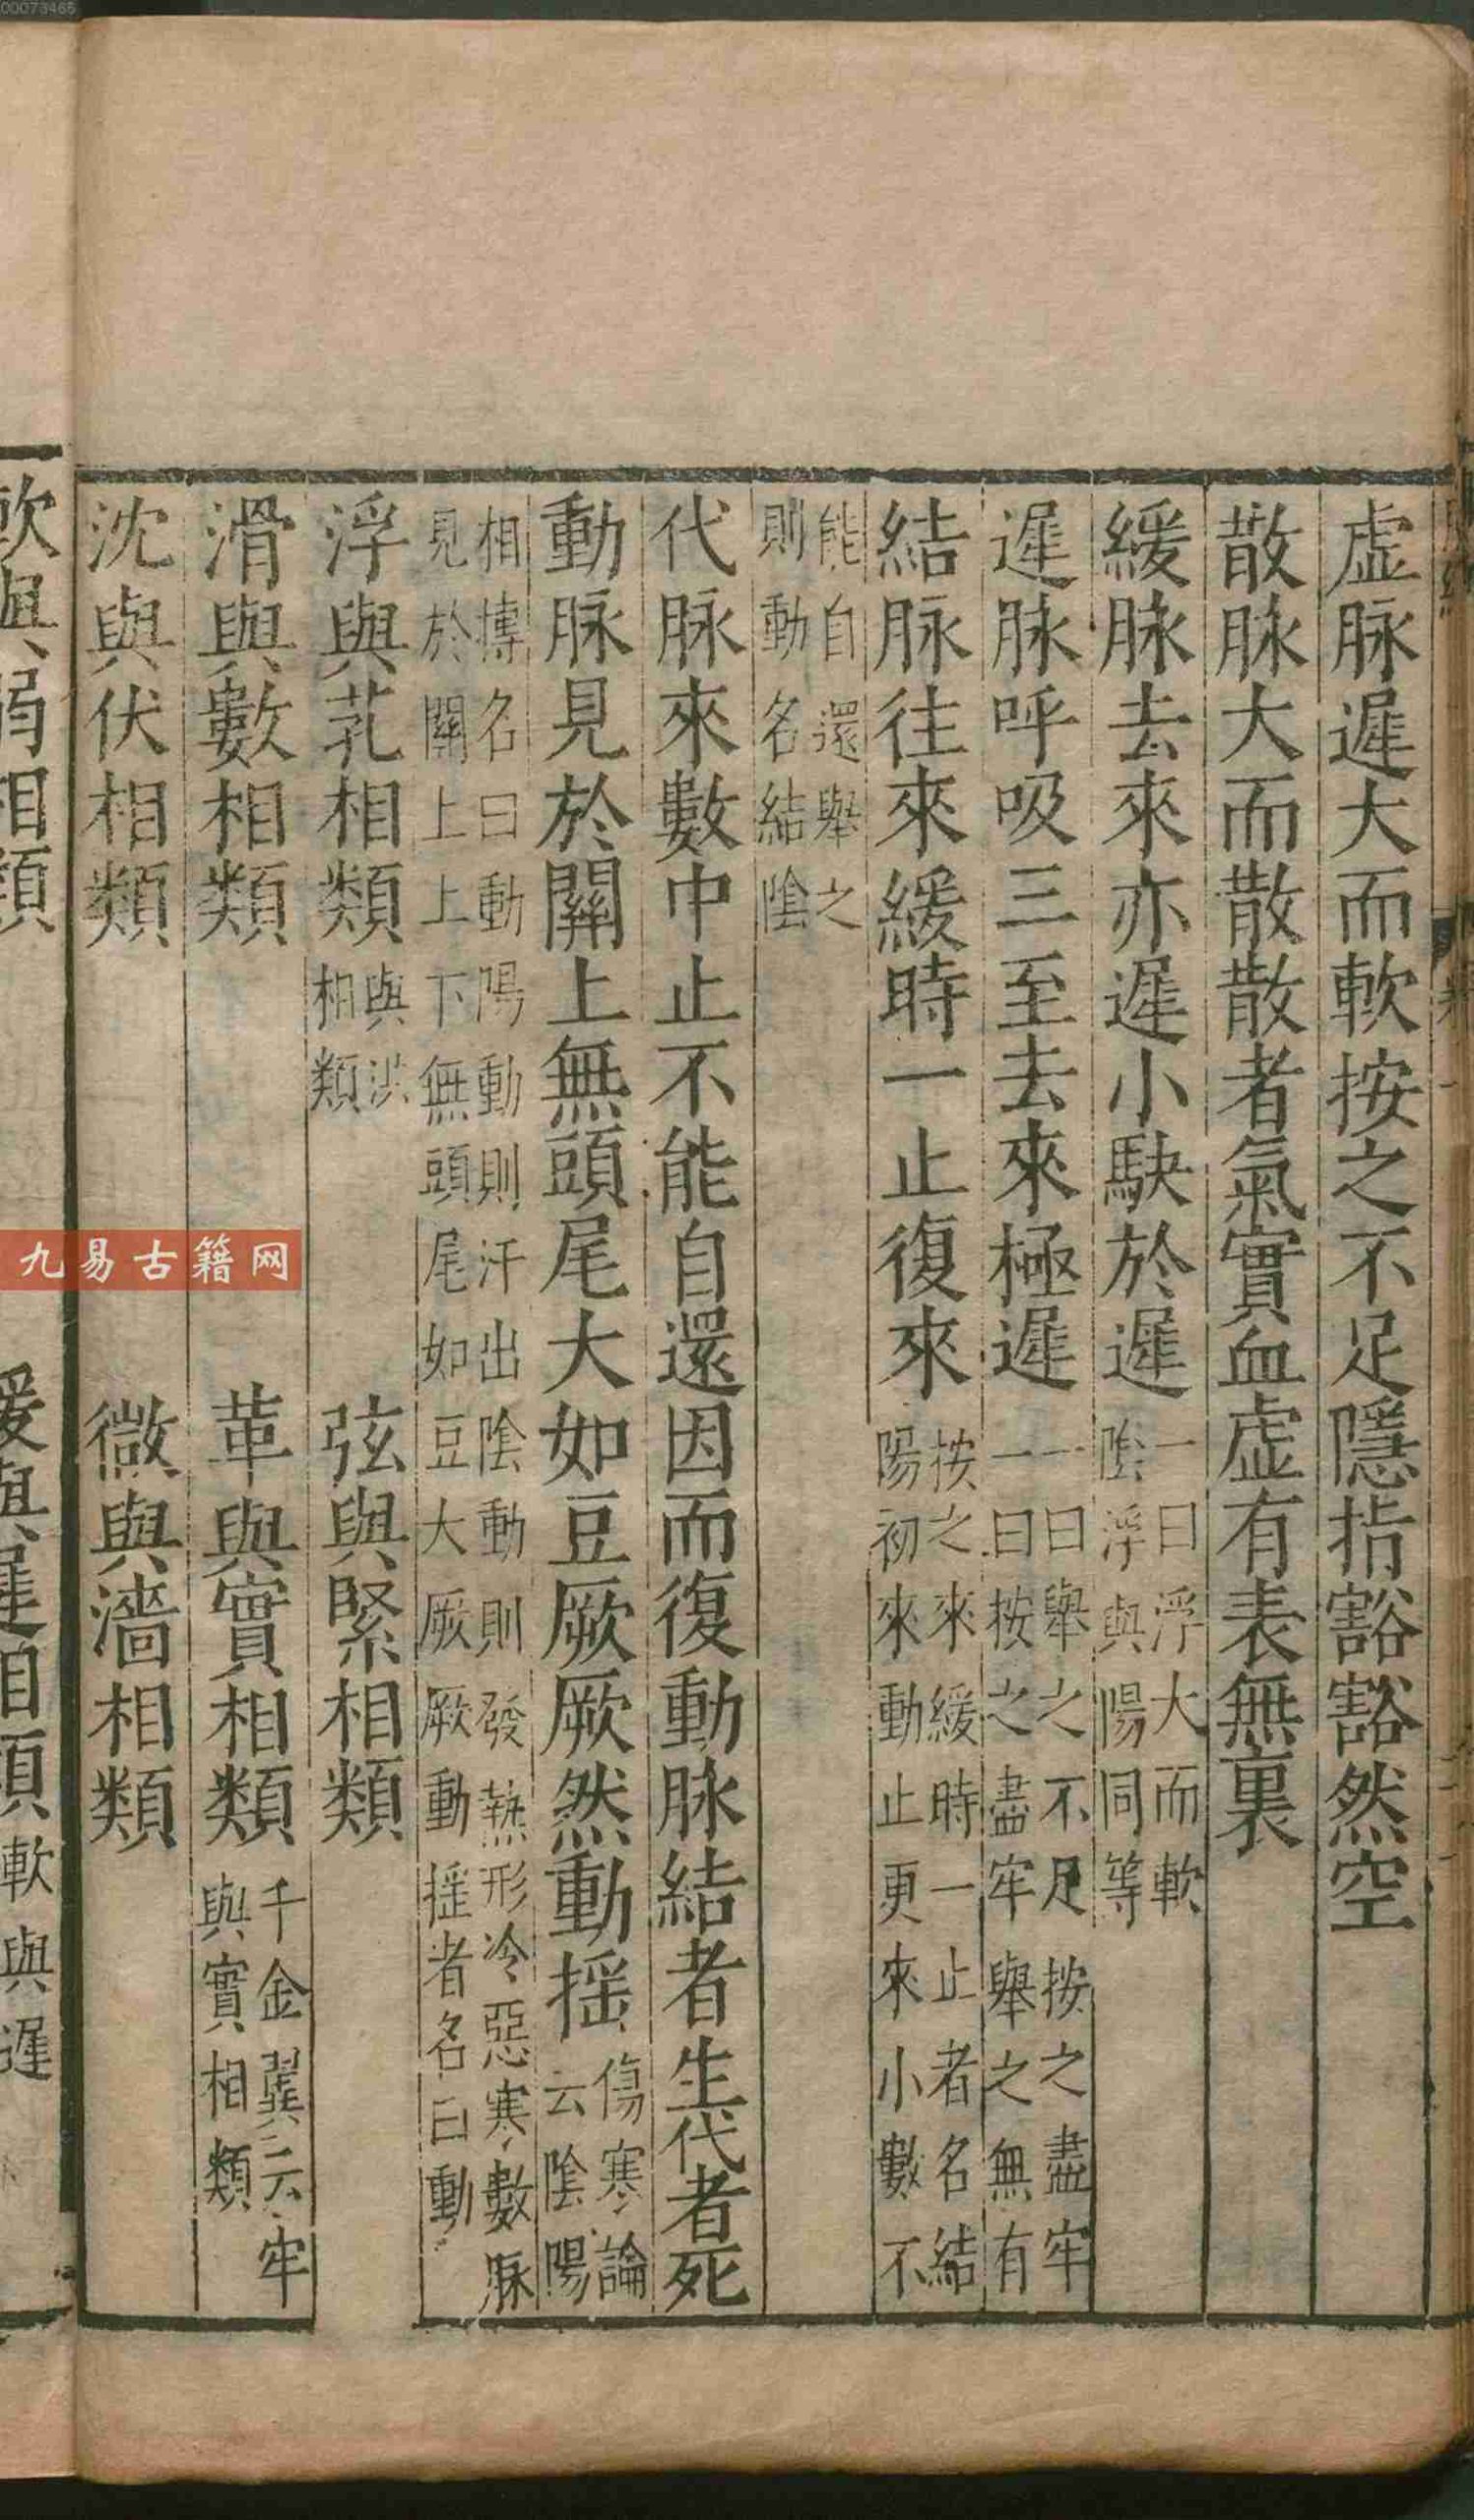 00073465
虛脉遲大而軟按之不足隱指豁豁然空
散脉大而散散者氣實血虛有表無裏
緩脉去來亦遲小駃於遲一曰浮大而軟陰浮與陽同等
遲脉呼吸三至去來極遲一曰舉之不足按之盡牢一曰按之盡牢舉之無有
結脉往來緩時一止復來按之來緩時一止者名結陽初來動止更來小數不
能自還舉之則動名結陰
代脉來數中止不能自還因而復動脉結者生代者死
動脉見於關上無頭尾大如豆厥厥然動搖傷寒論云陰陽
相搏名曰動陽動則汗出陰動則發熱形冷惡寒數脉見於關上上下無頭尾如豆大厥厥動搖者名曰動
浮與芤相類與洪相類 弦與緊相類
滑與數相類 革與實相類千金翼云牢與實相類
沈與伏相類 微與濇相類
軟與弱相類 緩與遲相類軟與遲
九易古籍网